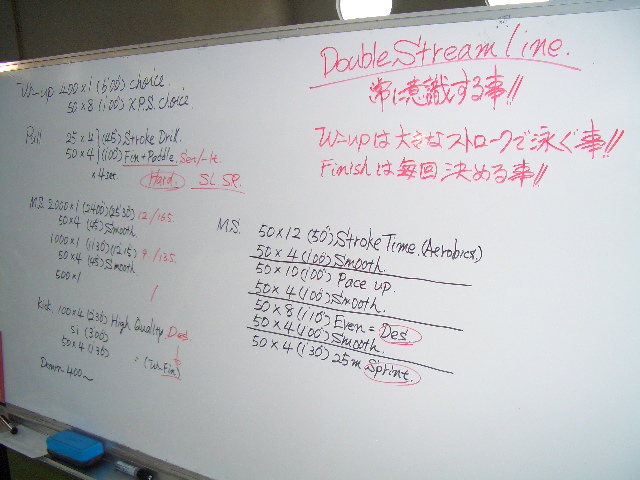 Double Streamline.
常に意識する事!!
W-upは大きなストロークで泳ぐ事!!
Finishは毎回決める事!!
W-up 400×1 (6'00") choice.
50×8 (1'00") K.P.S. choice.
Pull
25×4 (45") Stroke Drill.
50×4 (1'00") Fin+Paddle.
×4set.
Hard. SL. SP.
M.S. 2000×1 (24'00) (25'30)
50×4 (45") Smooth
1000×1 (11'30) (12'15)
50×4 (45") Smooth
500×1
Kick. 100×4 (2'30") High Quality. Des.
S1 (3'00")
50×4 (1'30") = (W-Fin)
Down 400~
M.S.
50×12 (50") Stroke Time. (Aerobics)
50×4 (1'00") Smooth.
50×10 (1'00") Pace up.
50×4 (1'00") Smooth.
50×8 (1'10") Even = Des.
50×4 (1'00") Smooth.
50×4 (1'30") 25m Sprint.